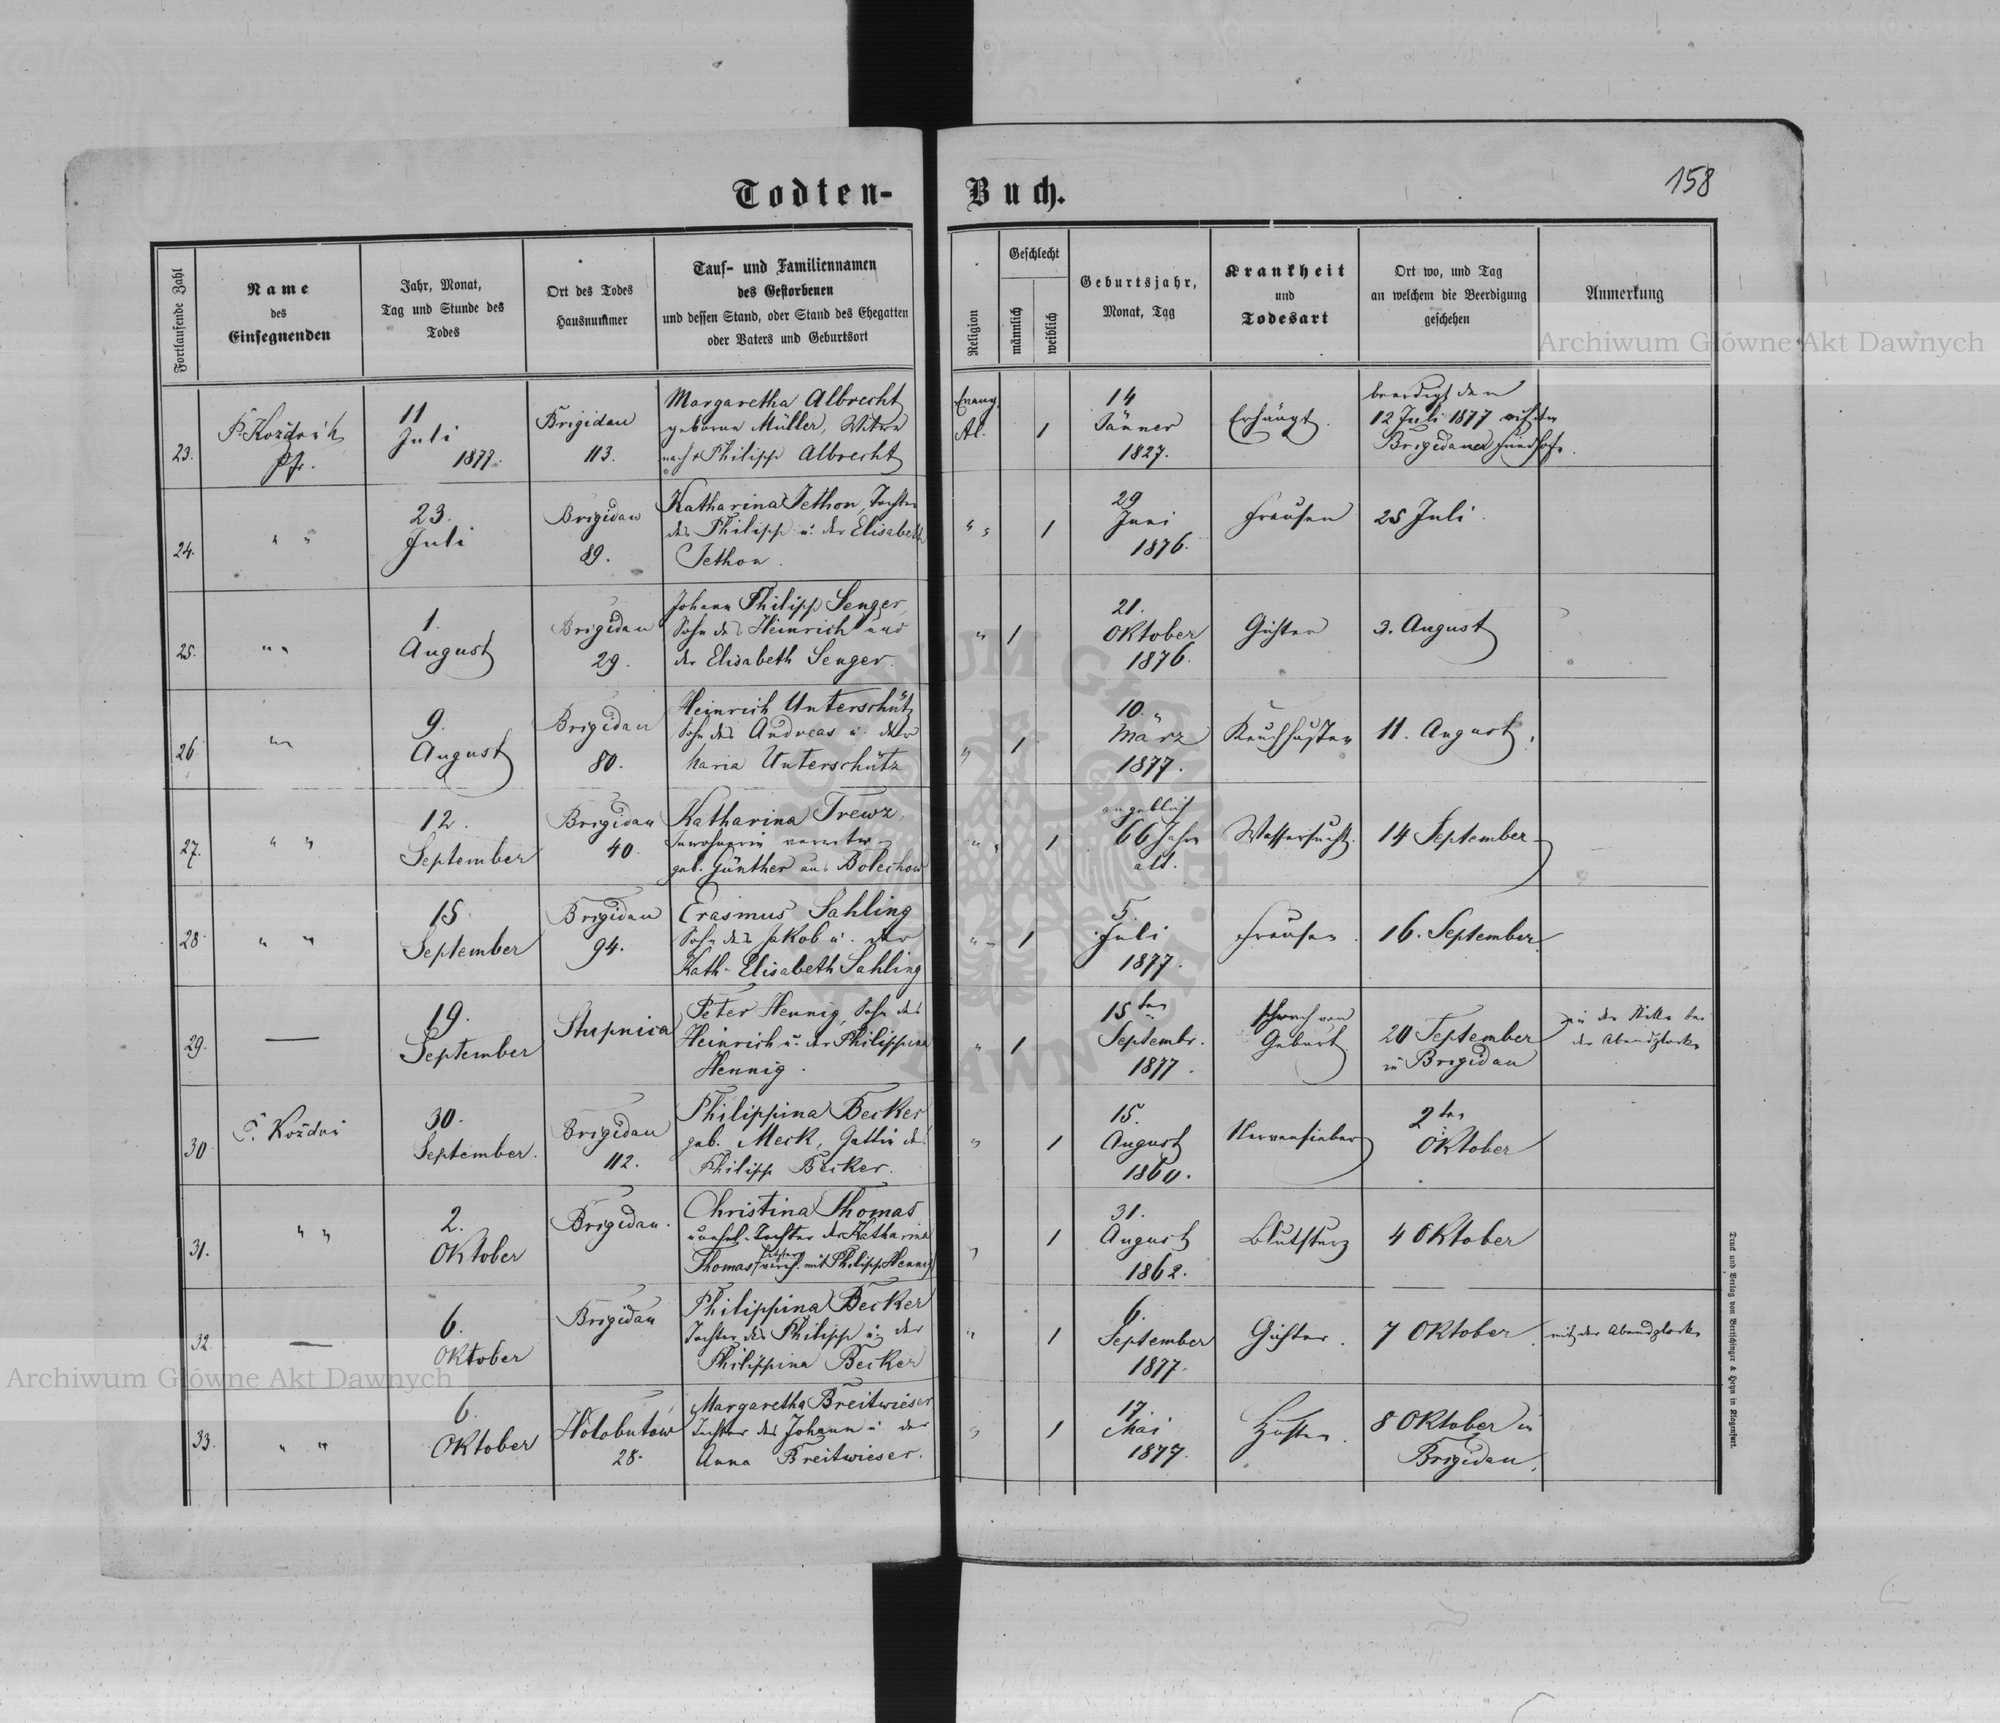 Todten-Buch.
158
Fortlaufende Zahl
Name
des
Einsegnenden
Jahr, Monat,
Tag und Stunde des
Todes
Ort des Todes
Hausnummer
Tauf- und Familiennamen
des Gestorbenen
und dessen Stand, oder Stand des Ehegatten
oder Vaters und Geburtsort
Religion
Geschlecht
männlich
weiblich
Geburtsjahr,
Monat, Tag
Krankheit
und
Todesart
Ort wo, und Tag
an welchem die Beerdigung
geschehen
Anmerkung
Archiwum Główne Akt Dawnych
23.
Pfr.
11
Juli
1877.
Brigidau
113.
Margaretha Albrecht
geborne Müller, Witwe
nach + Philipp Albrecht
Evang.
1
14
Jänner
1827.
Erhängt.
beerdigt den
12 Juli 1877 auf dem
Brigidauer Friedhofe.
24.
" "
23.
Juli
Brigidau
89.
Katharina Jethon, Tochter
des Philipp u. der Elisabeth
Jethon.
" "
1
29
Juni
1876.
Fraisen
25 Juli.
25.
" "
1.
August
Brigidau
29.
Johann Philipp Senger,
Sohn des Heinrich und
der Elisabeth Senger.
"
1
21.
Oktober
1876.
Gichter
3. August
26.
" "
9.
August
Brigidau
80.
Heinrich Unterschütz
Sohn des Andreas u. der
Maria Unterschütz
"
1
10.
März
1877.
Keuchhusten
11. August.
27.
" "
12.
September
Brigidau
40.
Katharina Trewz
Inwohnerin verwitw.
geb. Günther aus Bolechow
" "
1
angeblich
66 Jahre
alt.
Wassersucht.
14 September
28.
" "
15
September
Brigidau
94.
Erasmus Sahling
Sohn des Jakob u. der
Kath. Elisabeth Sahling
"
1
5.
Juli
1877.
Fraisen.
16. September
29.
—
19.
September
Stupnica
Peter Hennig, Sohn des
Heinrich u. der Philippina
Hennig.
"
1
15ten
Septembr.
1877.
schwach von
Geburt
20 September
in Brigidau
in der Stille bei
der Abendglocke
30.
30.
September.
Brigidau
112.
Philippina Becker
geb. Meck, Gattin des
Philipp Becker.
"
1
15.
August
1860.
Nervenfieber
2ten
Oktober
31.
" "
2.
Oktober
Brigidau.
Christina Thomas
unehel. Tochter der Katharina
Thomas mit Philipp Hennig
"
1
31.
August
1862.
Blutsturz
4 Oktober
32.
—
6.
Oktober
Brigidau
Philippina Becker
Tochter des Philipp u. der
Philippina Becker
"
1
6.
September
1877.
Gichter.
7 Oktober
mit der Abendglocke
33.
" "
6.
Oktober
Hołobutów
28.
Margaretha Breitwieser
Tochter des Johann u. der
Anna Breitwieser.
"
1
17.
Mai
1877.
Husten.
8 Oktober in
Brigidau.
Druck und Verlag von Bertschinger & Heyn in Klagenfurt.
Archiwum Główne Akt Dawnych